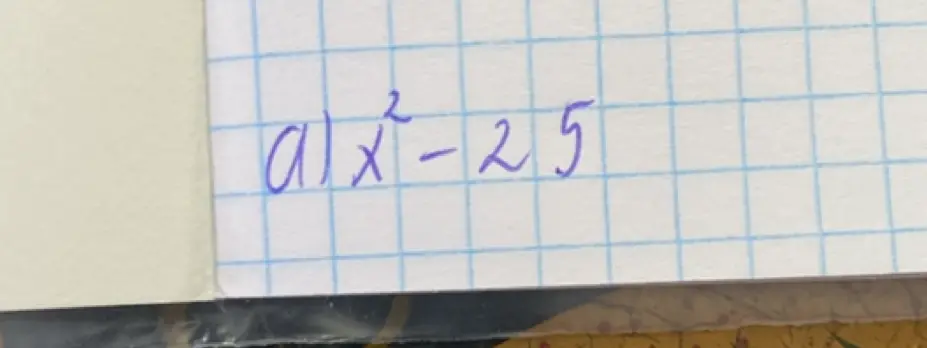 a) x² - 25